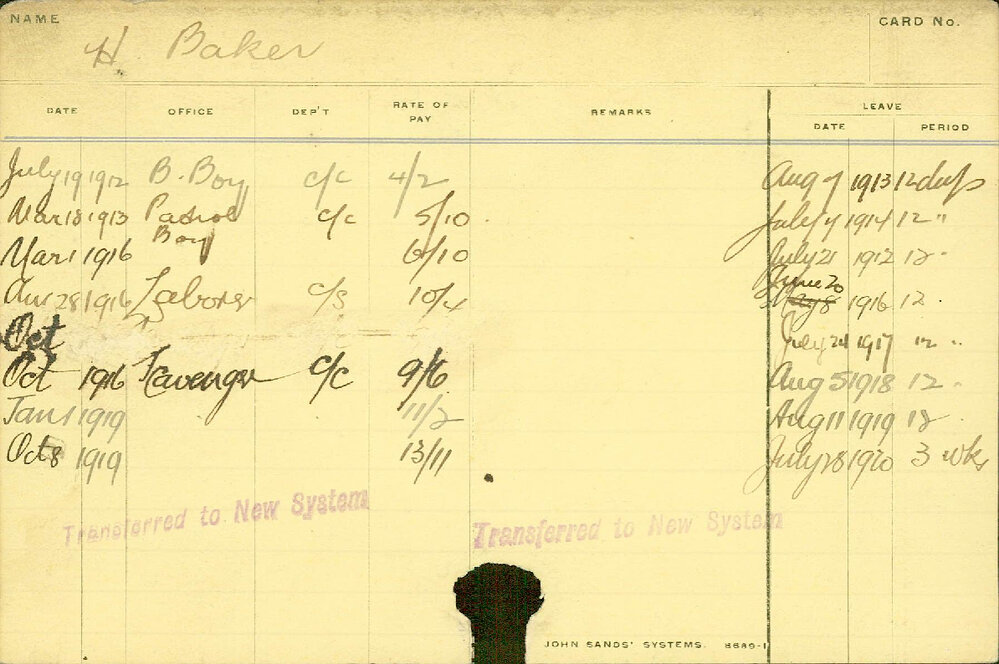 NAME
H. Baker
CARD No.
DATE OFFICE DEP'T RATE OF PAY REMARKS LEAVE
DATE PERIOD
July 19 1912 B. Boy c/c 4/2 Aug 7 1913 12 days
Mar 18 1913 Patrol Boy c/c 5/10 July 7 1914 12 "
Mar 1 1916 6/10 July 21 1912 12 "
Aug 28 1916 Laborer c/s 10/4 June 20 1916 12 "
Oct July 24 1917 12 "
Oct 1916 Scavenger c/c 9/6 Aug 5 1918 12 "
Jan 1 1919 11/2 Aug 11 1919 12
Oct 8 1919 13/11 July 28 1920 3 wks
Transferred to New System
Transferred to New System
JOHN SANDS' SYSTEMS. 8689-1